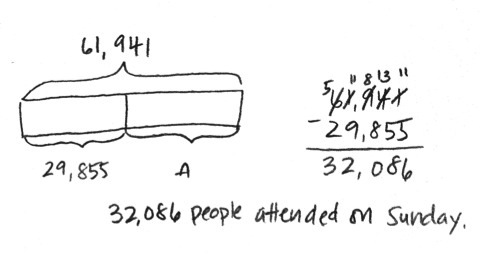 61,941
29,855 A
5 11 8 13 11
61,941
- 29,855
32,086
32,086 people attended on Sunday.